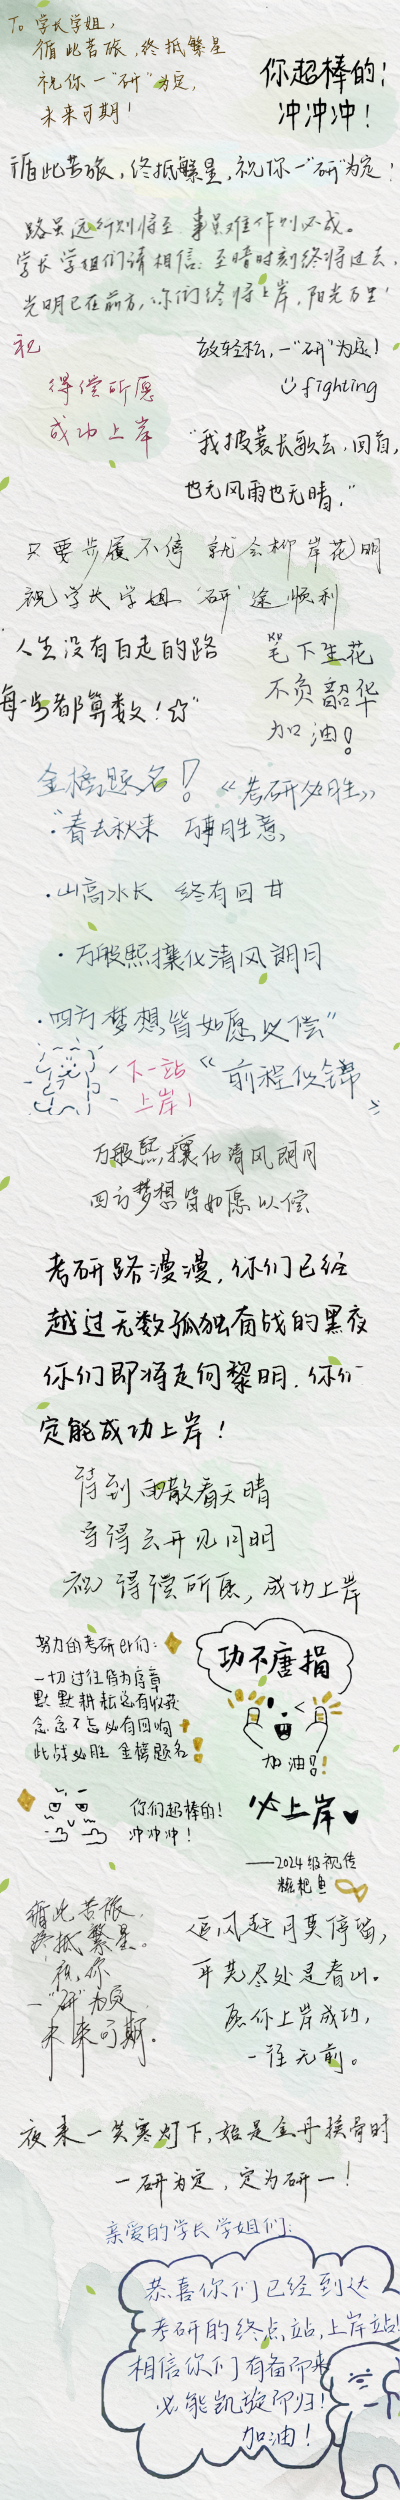 To 学长学姐，
循此苦旅，终抵繁星
祝你一"研"为定，
未来可期！
你超棒的！
冲冲冲！
循此苦旅，终抵繁星，祝你一"研"为定！
路虽远行则将至 事虽难作则必成。
学长学姐们请相信：至暗时刻终将过去，
光明已在前方，你们终将上岸，阳光万里！
祝
得偿所愿
成功上岸
放轻松，一"研"为定！
fighting
"我披蓑长歌去，回首，
也无风雨也无晴."
只要步履不停 就会柳岸花明
祝学长学姐"研"途顺利
"人生没有白走的路
每一步都算数！☆"
笔下生花
不负韶华
加油！
金榜题名！《考研必胜》
"春去秋来 万事胜意，
·山高水长 终有回甘
·万般熙攘化清风朗月
·四方梦想皆如愿以偿"
下一站
上岸！
《前程似锦》
万般熙攘化清风朗月
四方梦想皆如愿以偿
考研路漫漫，你们已经
越过无数孤独奋战的黑夜
你们即将走向黎明，你们
定能成功上岸！
待到雨散看天晴
守得云开见月明
祝 得偿所愿，成功上岸
努力的考研er们：
一切过往皆为序章
默默耕耘总有收获
念念不忘必有回响
此战必胜 金榜题名！
功不唐捐
加油！！
你们超棒的！
冲冲冲！
必上岸♥
——2024级视传
糍粑鱼
循此苦旅，
终抵繁星。
祝你
一"研"为定
未来可期.
追风赶月莫停留，
平芜尽处是春山。
愿你上岸成功，
一往无前。
夜来一笑寒灯下，始是金丹换骨时
一研为定，定为研一！
亲爱的学长学姐们：
恭喜你们已经到达
考研的终点站，上岸站！
相信你们有备而来
必能凯旋而归！
加油！